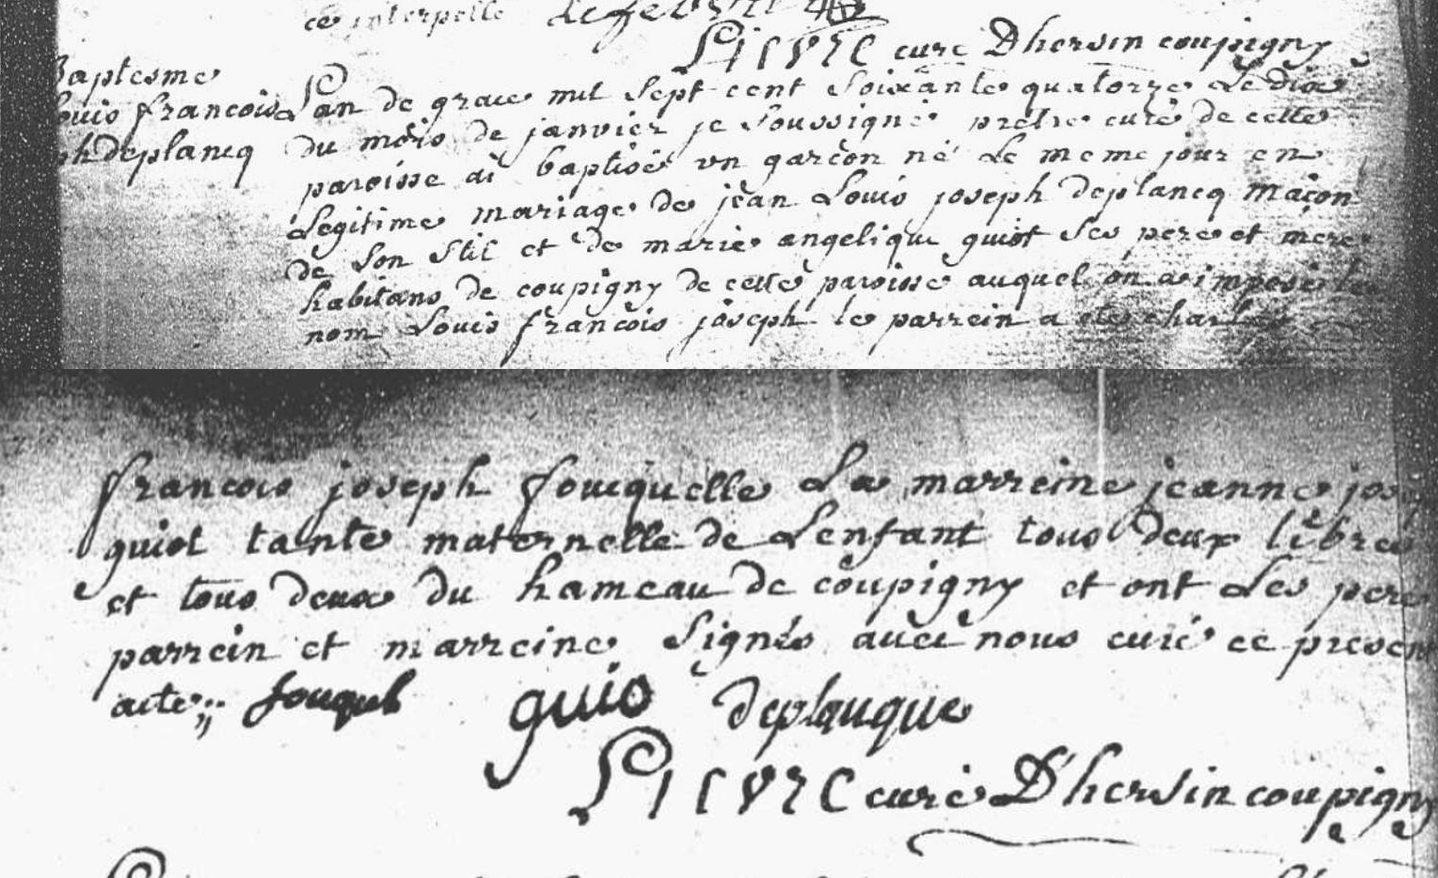 ce interpellé
curé Dhersin coupigny
Baptesme
Louis francois
ph deplancq
Lan de grace mil sept cent soixante quatorze Le dix
du mois de janvier je soussigné pretre curé de cette
paroisse ai baptisé un garcon né Le meme jour en
Legitime mariage de jean Louis joseph deplancq maçon
de son stil et de marie angelique guiot ses pere et mere
habitans de coupigny de cette paroisse auquel on a imposé le
nom Louis françois joseph le parrein a été charles
francois joseph fouquelle La marreine jeanne jos
guiot tante maternelle de Lenfant tous deux libres
et tous deux du hameau de coupigny et ont Les pere
parrein et marreine signés avec nous curé ce present
acte;; fouquel guio deplanque
curé D'hersin coupigny